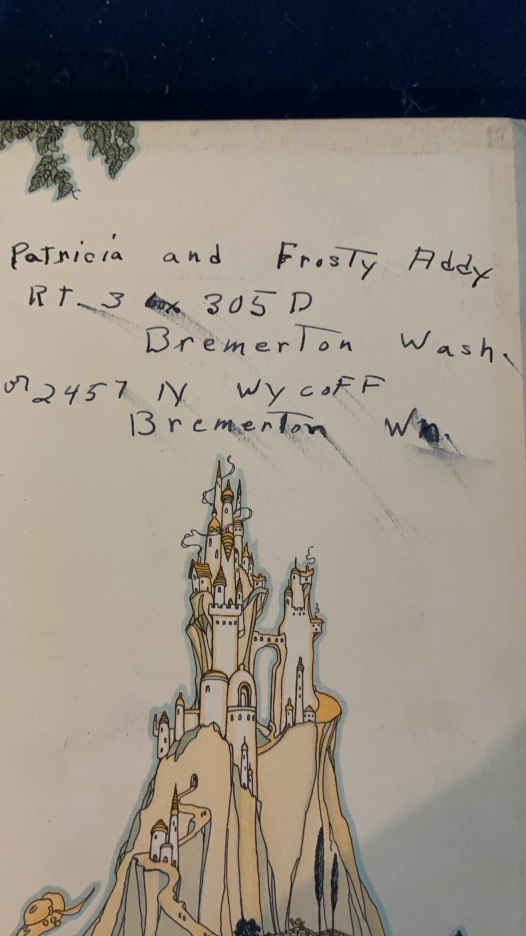 Patricia and Frosty Addy
RT. 3 box 305 D
Bremerton Wash.
or 2457 N Wycoff
Bremerton Wn.